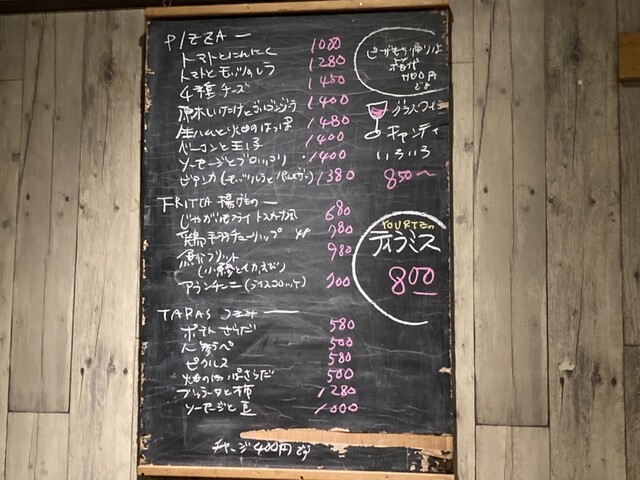 PIZZA ー
トマトとにんにく 1000
トマトとモッツァレラ 1280
4種チーズ 1450
原木しいたけとゴルゴンゾーラ 1400
生ハムと畑のはっぱ 1480
ベーコンと玉子 1400
ソーセージとブロッコリ 1400
ビアンカ(モッツァレラとパルメザン) 1380
FRITTA 揚げもの ー
じゃがいもフライト 680
鶏手羽チューリップ 780
魚介フリット 980
(小鰺とイカ,えび)
アランチーニ(ライスコロッケ) 700
TAPAS つまみ ー
ポテトさらだ 580
500
ピクルス 580
畑のはっぱさらだ 500
ブッラータと柿 1280
ソーセージと豆 1000
チャージ400円です
ピザもち帰りは
箱代
100円
です
グラスワイン
キャンティ
いろいろ
850〜
ティラミス
800